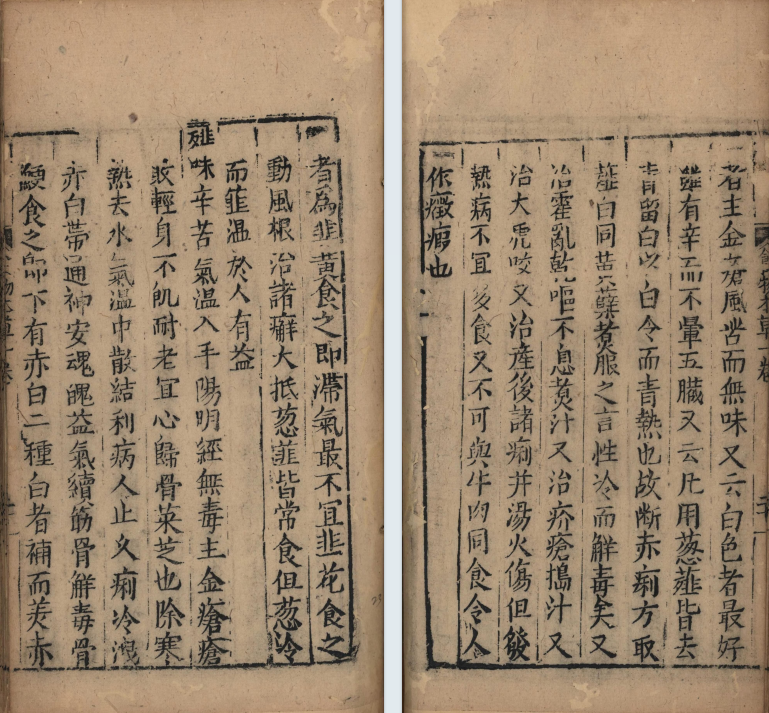 者為韭黃食之即滯氣最不宜韭花食之
動風根治諸癬大抵葱韭皆常食但葱冷
而韮溫於人有益
薤味辛苦氣温入手陽明經無毒主金瘡瘡
敗輕身不飢耐老宜心歸骨菜芝也除寒
熱去水氣温中散結利病人止久痢冷洩
赤白帶通神安魂魄益氣續筋骨解毒骨
鯁食之即下有赤白二種白者補而美赤
者主金瘡風苦而無味又云白色者最好
雖有辛而不暈五臟又云凡用葱薤皆去
青留白以白令而青熱也故断赤痢方取
薤白同苦蘗煮服之言性冷而解毒矣又
治霍亂乾嘔不息煮汁又治疥瘡搗汁又
治犬虎咬又治產後諸痢并湯火傷但發
熱病不宜多食又不可與牛肉同食令人
作癥瘕也
食物本草 卷